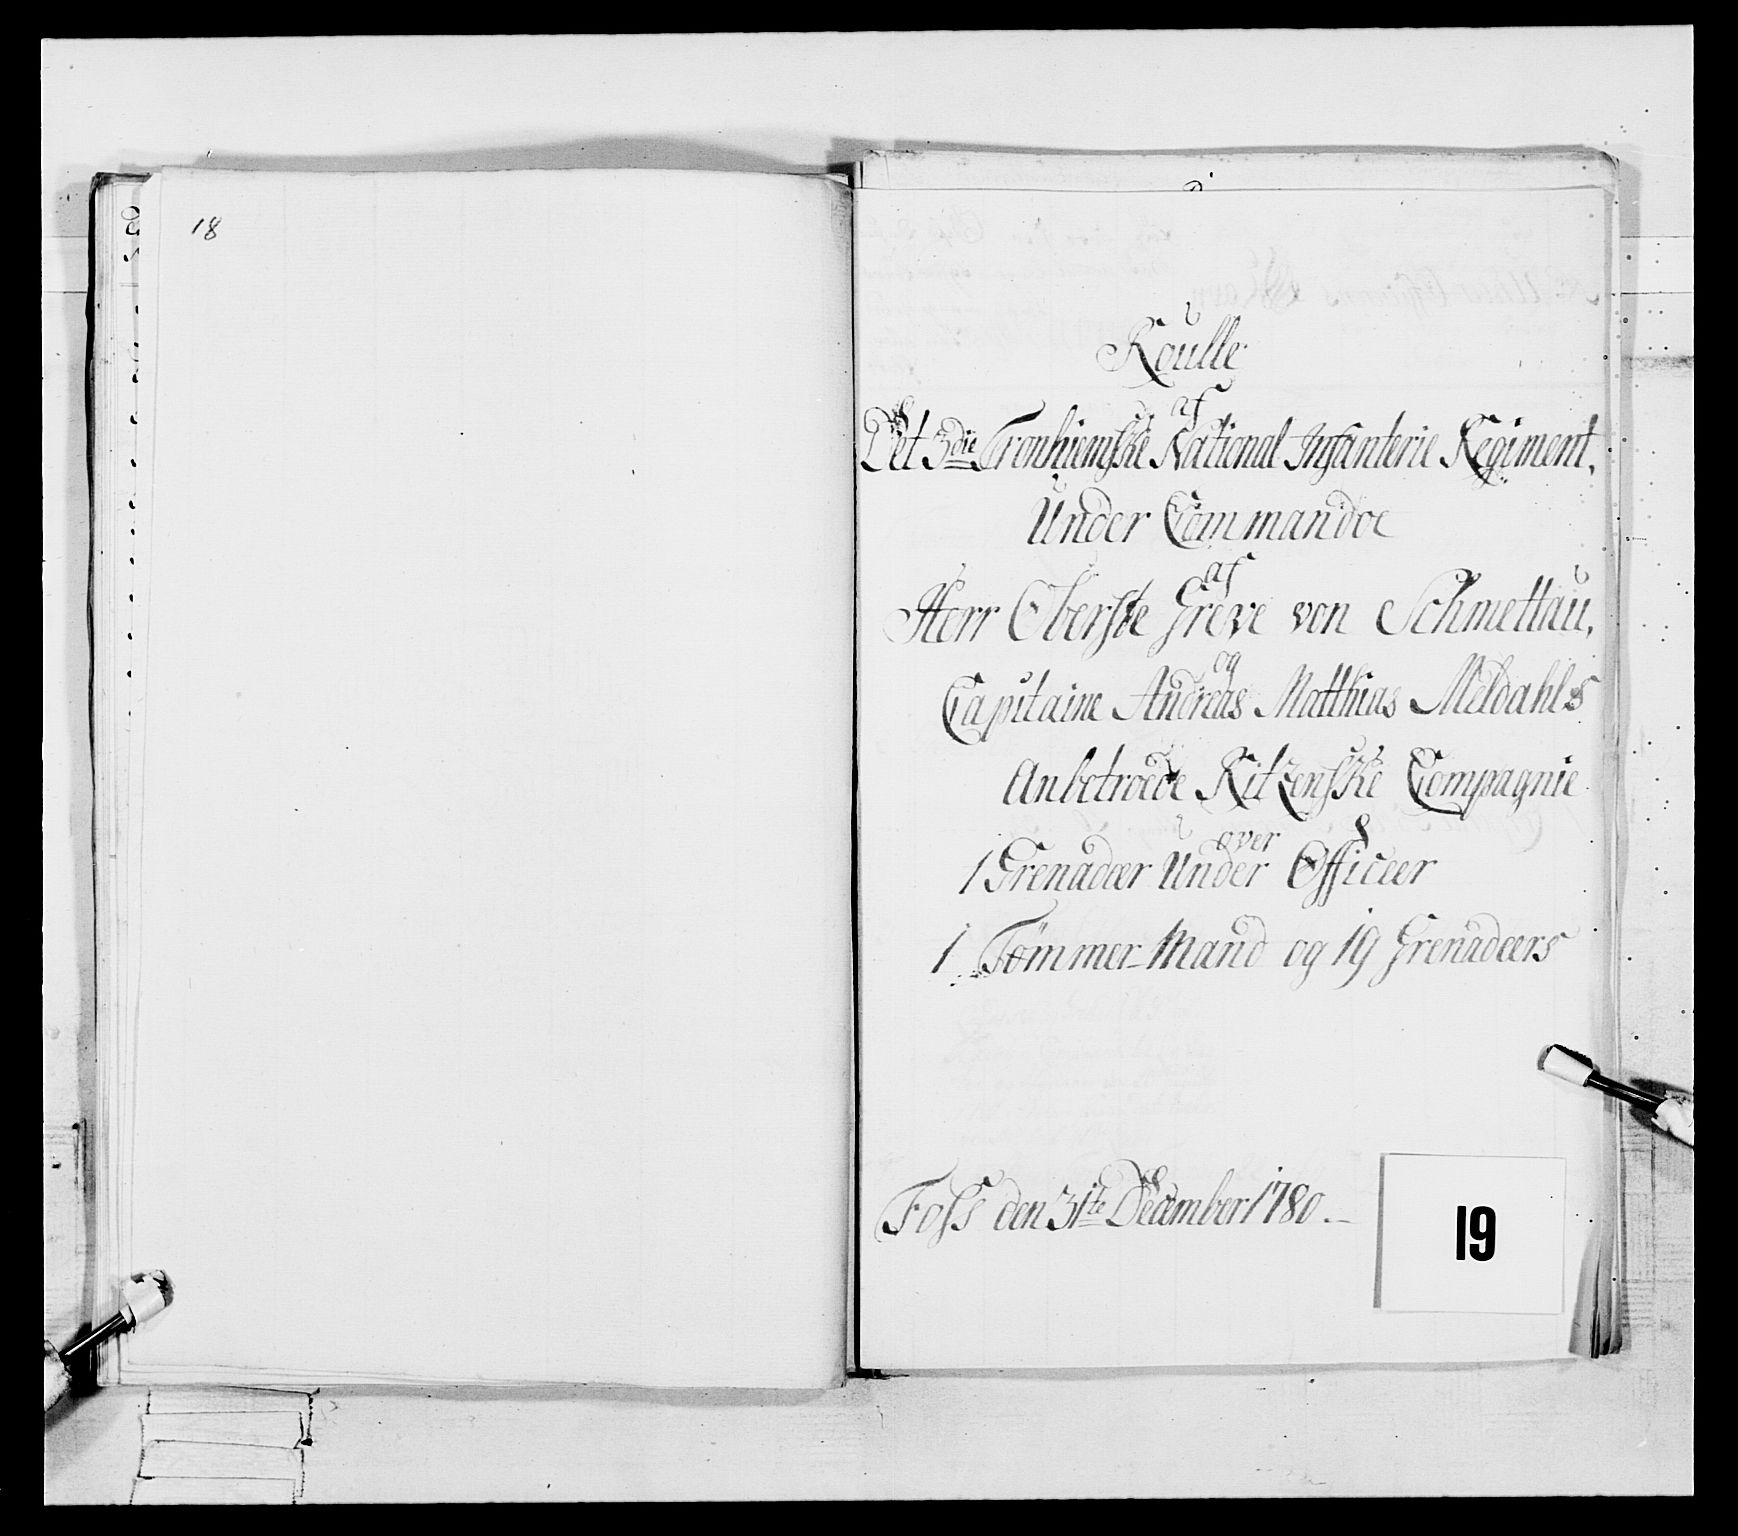 18
Roulle
af
Det 3die Tronhiemske National Infanterie Regiment,
Under Commandoe
af
Herr Oberste Greve von Schmettau,
og
Capitaine Andreas Matthias Meldahls
Anbetroede Ritzenske Compagnie
over
1 Grenadeer Under Officeer
1 Tømmer-Mand og 19 Grenadeers
Foss den 31te December 1780.
19